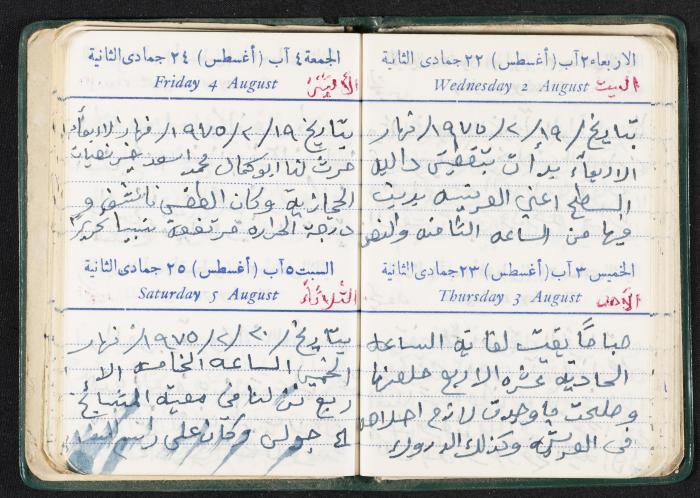 الاربعاء ٢ آب (أغسطس) ٢٢ جمادى الثانية
Wednesday 2 August السبت
بتاريخ /١٩/ ٢/ ١٩٧٥/ نهار
الاربعاء بدأت بتفقيش داليه
السطح اعني العريشه بديت
فيها من الساعه الثامنه والنص
الخميس ٣ آب (أغسطس) ٢٣ جمادى الثانية
Thursday 3 August الأحد
صباحاً بقيت لغاية الساعه
الحادية عشره الا ربع خلصتها
وصلحت ما وجدت لازم اصلاحه
في العريشه وكذلك
الجمعة ٤ آب (أغسطس) ٢٤ جمادى الثانية
Friday 4 August الأثنين
بتاريخ /١٩/ ٢/ ١٩٧٥/ نهار الاربعاء
لنا ابو كمال محمد اسعد
الحجازية وكان الطقس و
درجة الحراره مرتفعة
السبت ٥ آب (أغسطس) ٢٥ جمادى الثانية
Saturday 5 August الثلاثاء
بتاريخ /٢٠/ ٢/ ١٩٧٥/ نهار
الخميس الساعه الخامسه الا
ربع لنا في معية المشايخ
جولس وكان على رأسهم